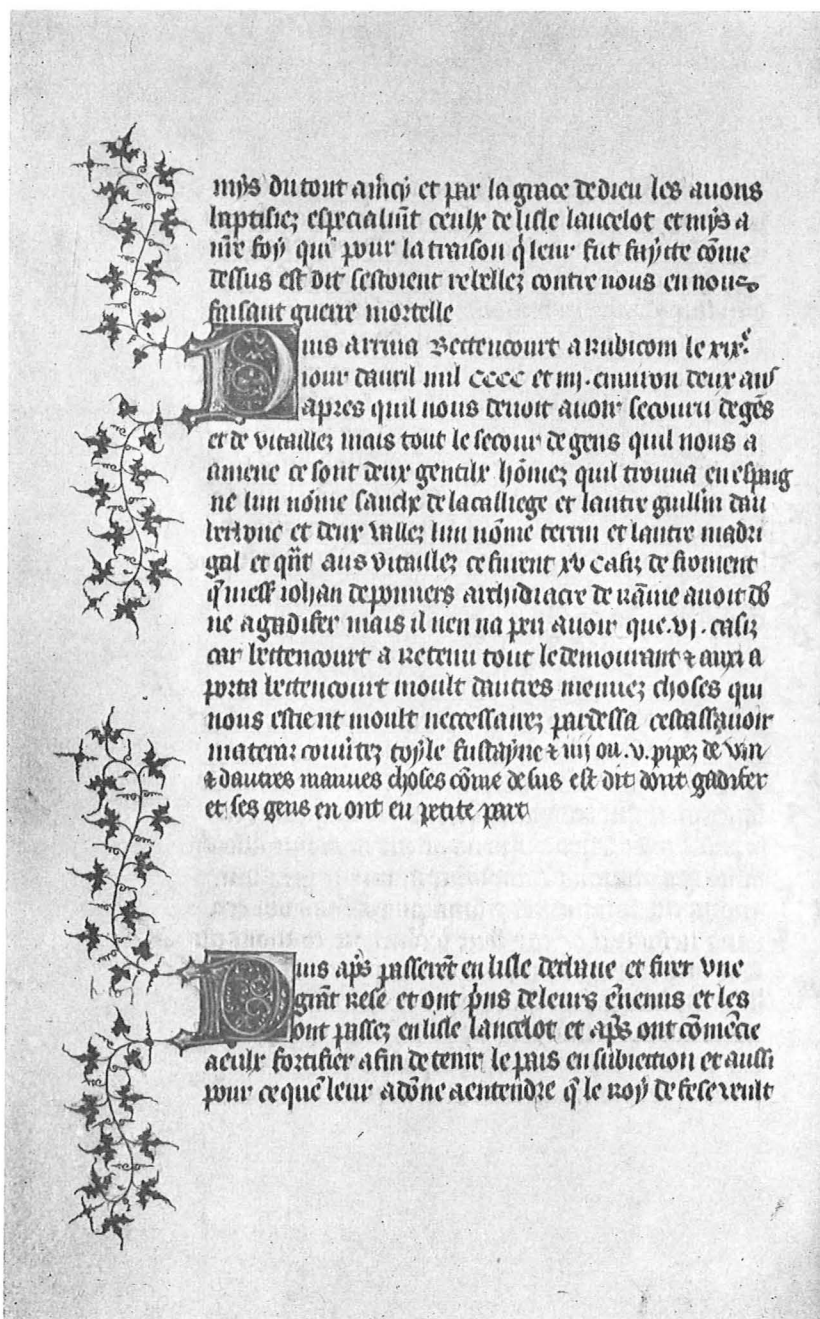 mys du tout a m̃cy et par la grace de dieu les auons
baptisiez especialm̃t ceulx de lisle lancelot et mys a
nr̃e foy qui pour la traison q̃ leur fut faycte cõme
dessus est dit sestoient rebellez contre nous en nous
faisant guerre mortelle
Puis arriua Bettencourt a Rubicom le xixᵉ
iour dauril mil cccc et iiij . enuiron deux ans
apres quil nous deuoit auoir secouru de gẽs
et de vitaillez mais tout le secour de gens quil nous a
amene ce sont deux gentilx hõmez quil trouua en espaig
ne lun nõme sanche de la calliege et lautre guillin dau
berbouc et deux vallez lun nõme terrin et lautre madri
gal et qñt aus vitaillez ce furent xv cafiz de froment
q̃ mess iohan de ponners archidiacre de rãme auoit dõ
ne a gadifer mais il nen na peu auoir que .vj. cafiz
car bettencourt a Retenu tout le demourant ⁊ auxi a
porta bettencourt moult dautres menuez choses qui
nous estient moult neccessairez pardessa cestassauoir
materaz couũtez toyle fustayne ⁊ iiij ou .v. pipez de vin
⁊ dautres manues choses cõme desus est dit dont gadifer
et ses gens en ont eu petite part
Puis ap̃s passerẽt en lisle derbane et firer vne
grãt Rese et ont p̃ns de leurs ẽnemis et les
ont passez en lisle lancelot et ap̃s ont cõmẽcie
a eulx fortifier afin de tenir le pais en subiection et aussi
pour ce que̾ leur a dõne a entendre q̃ le Roy de fese veult